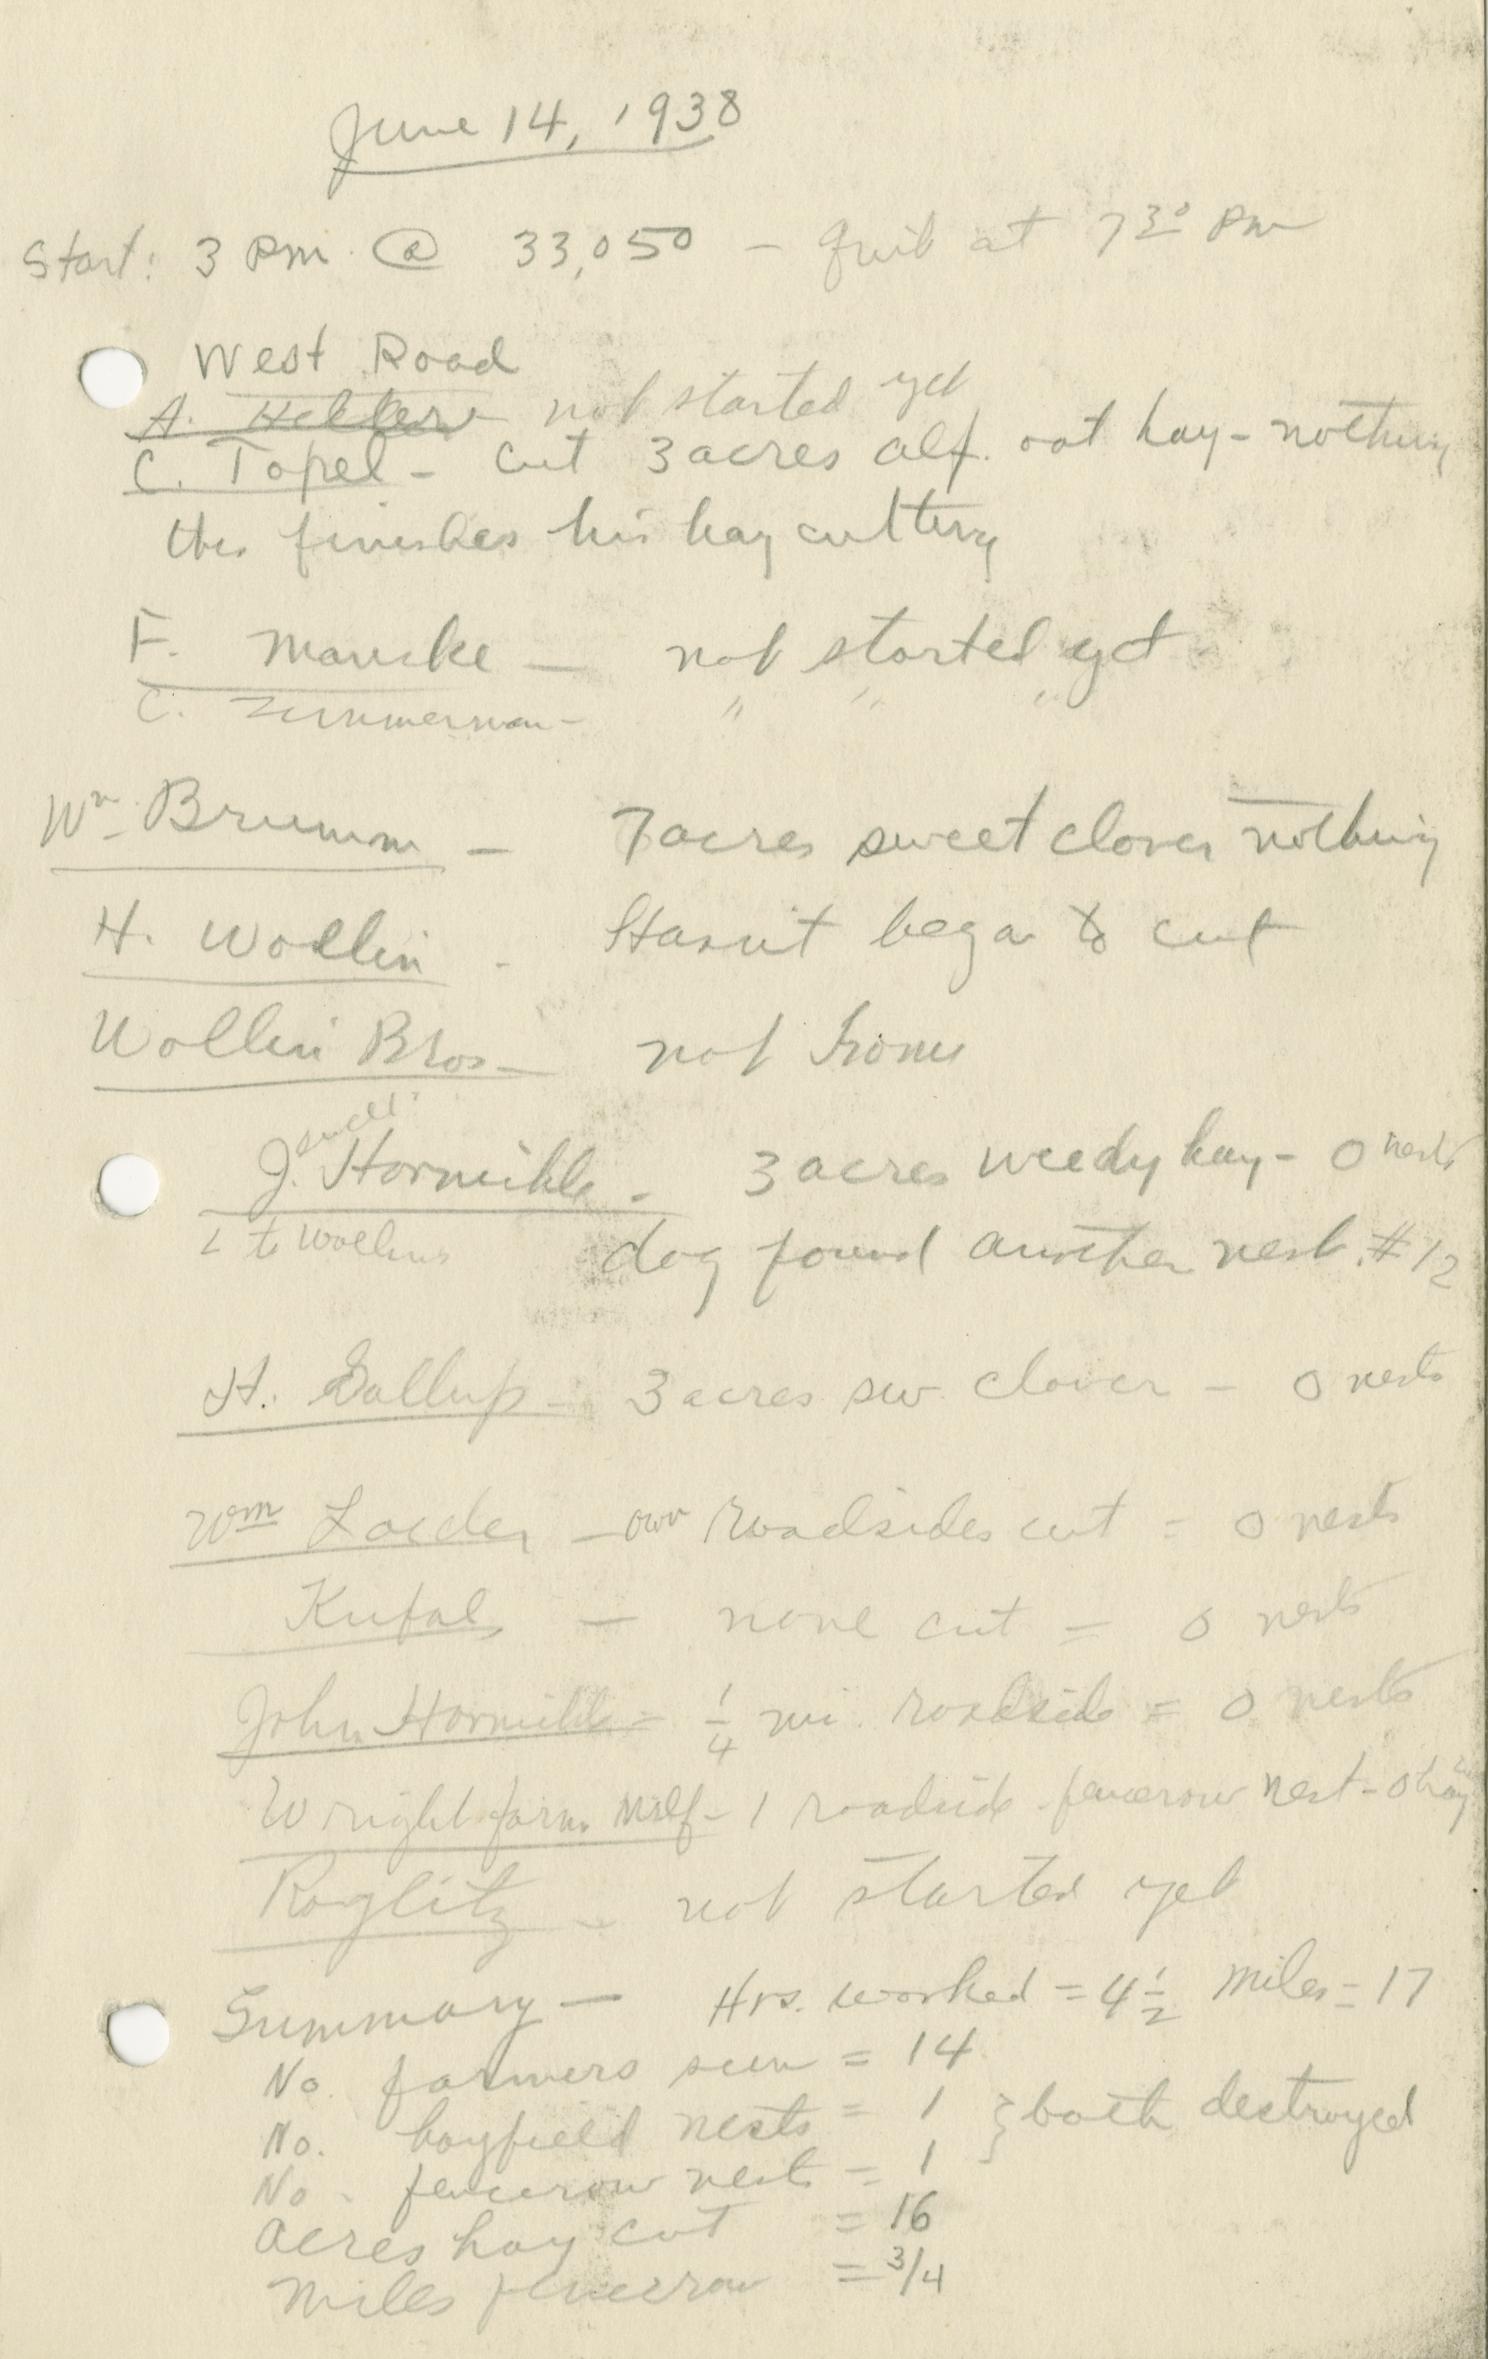 June 14, 1938
Start: 3 PM @ 33,050 – quit at 7 30 PM
West Road
A. not started yet
C. Topel – cut 3 acres alf. oat hay – nothing
this finishes his hay cutting
F. Manske — not started yet
C. Zimmerman – " " "
Wm Brumm – 7 acres sweet clover nothing
H. Wollin - Hasn't began to cut
Wollin Bros – not home
J. Hornickle - 3 acres weedy hay – 0 nests
to Wollins dog found another nest #12
H. Gallup – 3 acres sw. clover – 0 nests
Wm – own roadsides cut = 0 nests
Kufal – none cut = 0 nests
John Hornickle = 1/4 mi. roadside = 0 nests
Wright farm – 1 roadside fencerow nest – 0 hay
Roglitz – not started yet
Summary — Hrs. worked = 4 1/2 miles = 17
No. farmers seen = 14
No. hayfield nests = 1 } both destroyed
No. fencerow nests = 1
Acres hay cut = 16
Miles fencerow = 3/4